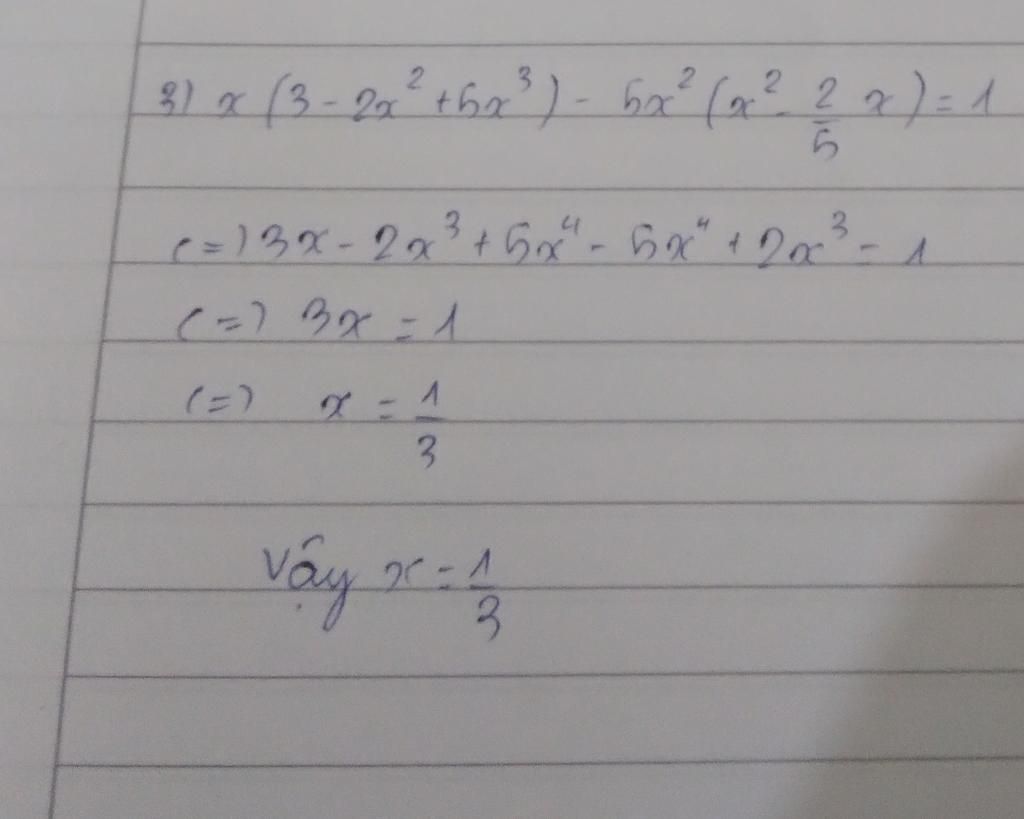 3) x(3 - 2x² + 5x³) - 5x²(x² - 2/5 x) = 1
(=) 3x - 2x³ + 5x⁴ - 5x⁴ + 2x³ = 1
(=) 3x = 1
(=) x = 1/3
Vậy x = 1/3